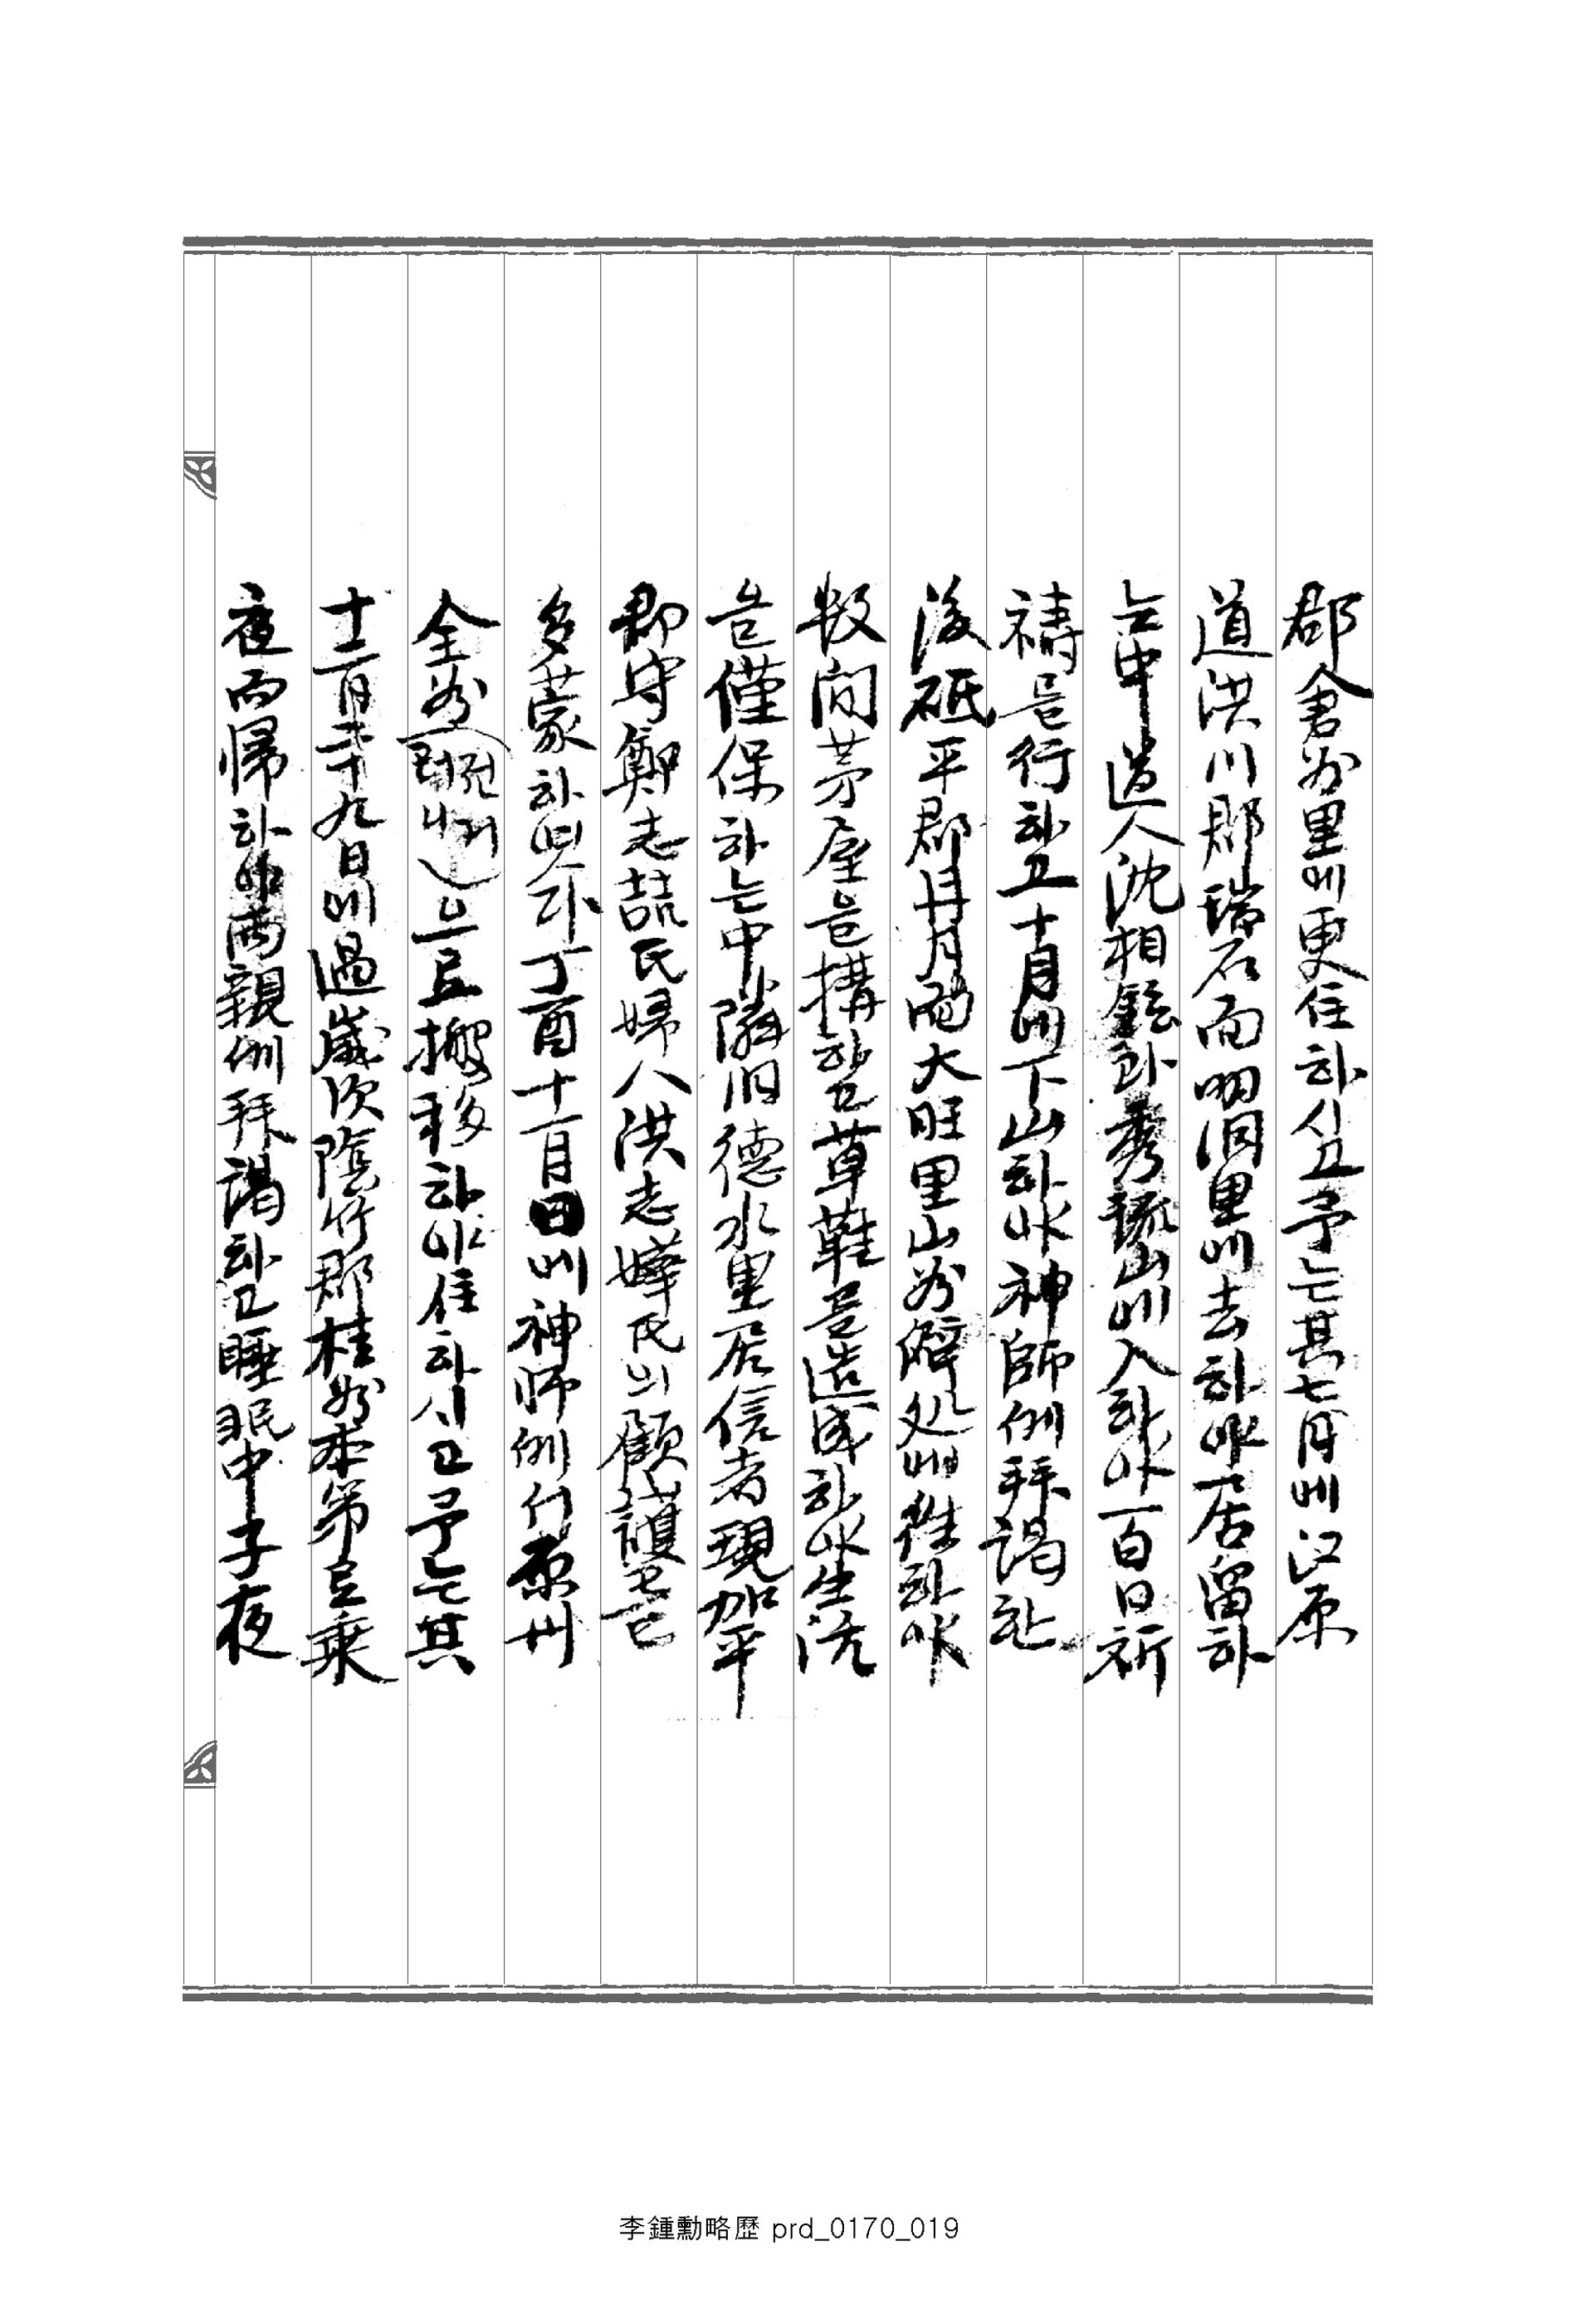 郡倉谷里에更住하시고予는其七月에江原
道洪川郡瑞石面明洞里에去하야居留하
는中道人沈相鉉과秀琉山에入하야百日祈
禱을行하고十月에下山하야神師에拜謁한
後砥平郡月面大旺里山谷僻処에往하야
数間茅屋을搆하고草鞋을造成하야生活
을僅保하는中隣洞德水里居信者現加平
郡守鄭志喆氏婦人洪志嬅氏의顧護을
多蒙하얏다丁酉十一月日에神師에셔原州
全谷으로搬移하야住하시고予는其
十二月二十九日에過歲次陰竹郡桂谷本第로乘
夜而帰하야両親에拜謁하고睡眠中子夜
李鍾勳略歷 prd_0170_019